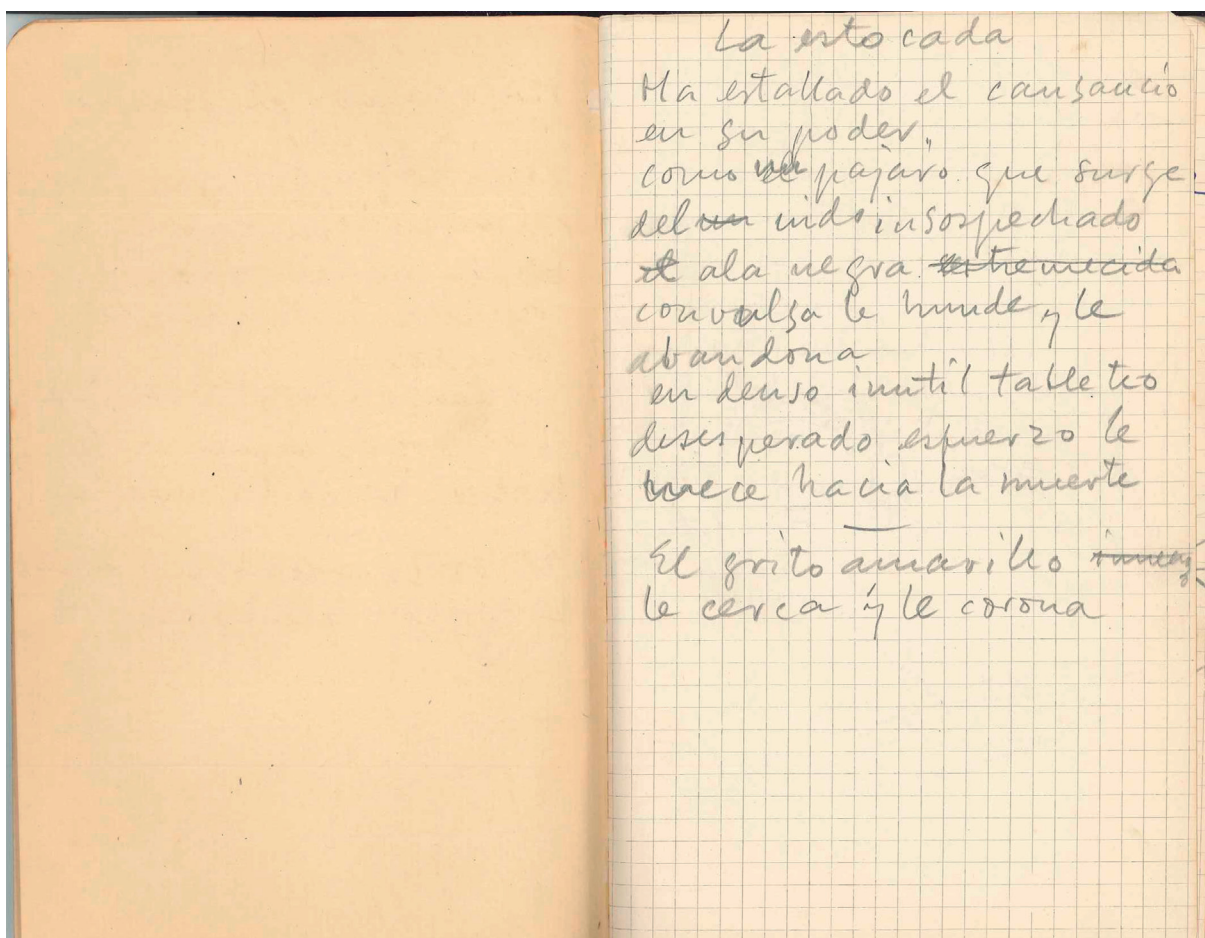 La estocada
Ha estallado el cansancio
en su poder,
como un pajaro que surge
del un nido insospechado
el ala negra estremecida
convulsa le hunde, y le
abandona
en denso inutil tableteo
desesperado esfuerzo le
mece hacia la muerte
El grito amarillo
le cerca y le corona